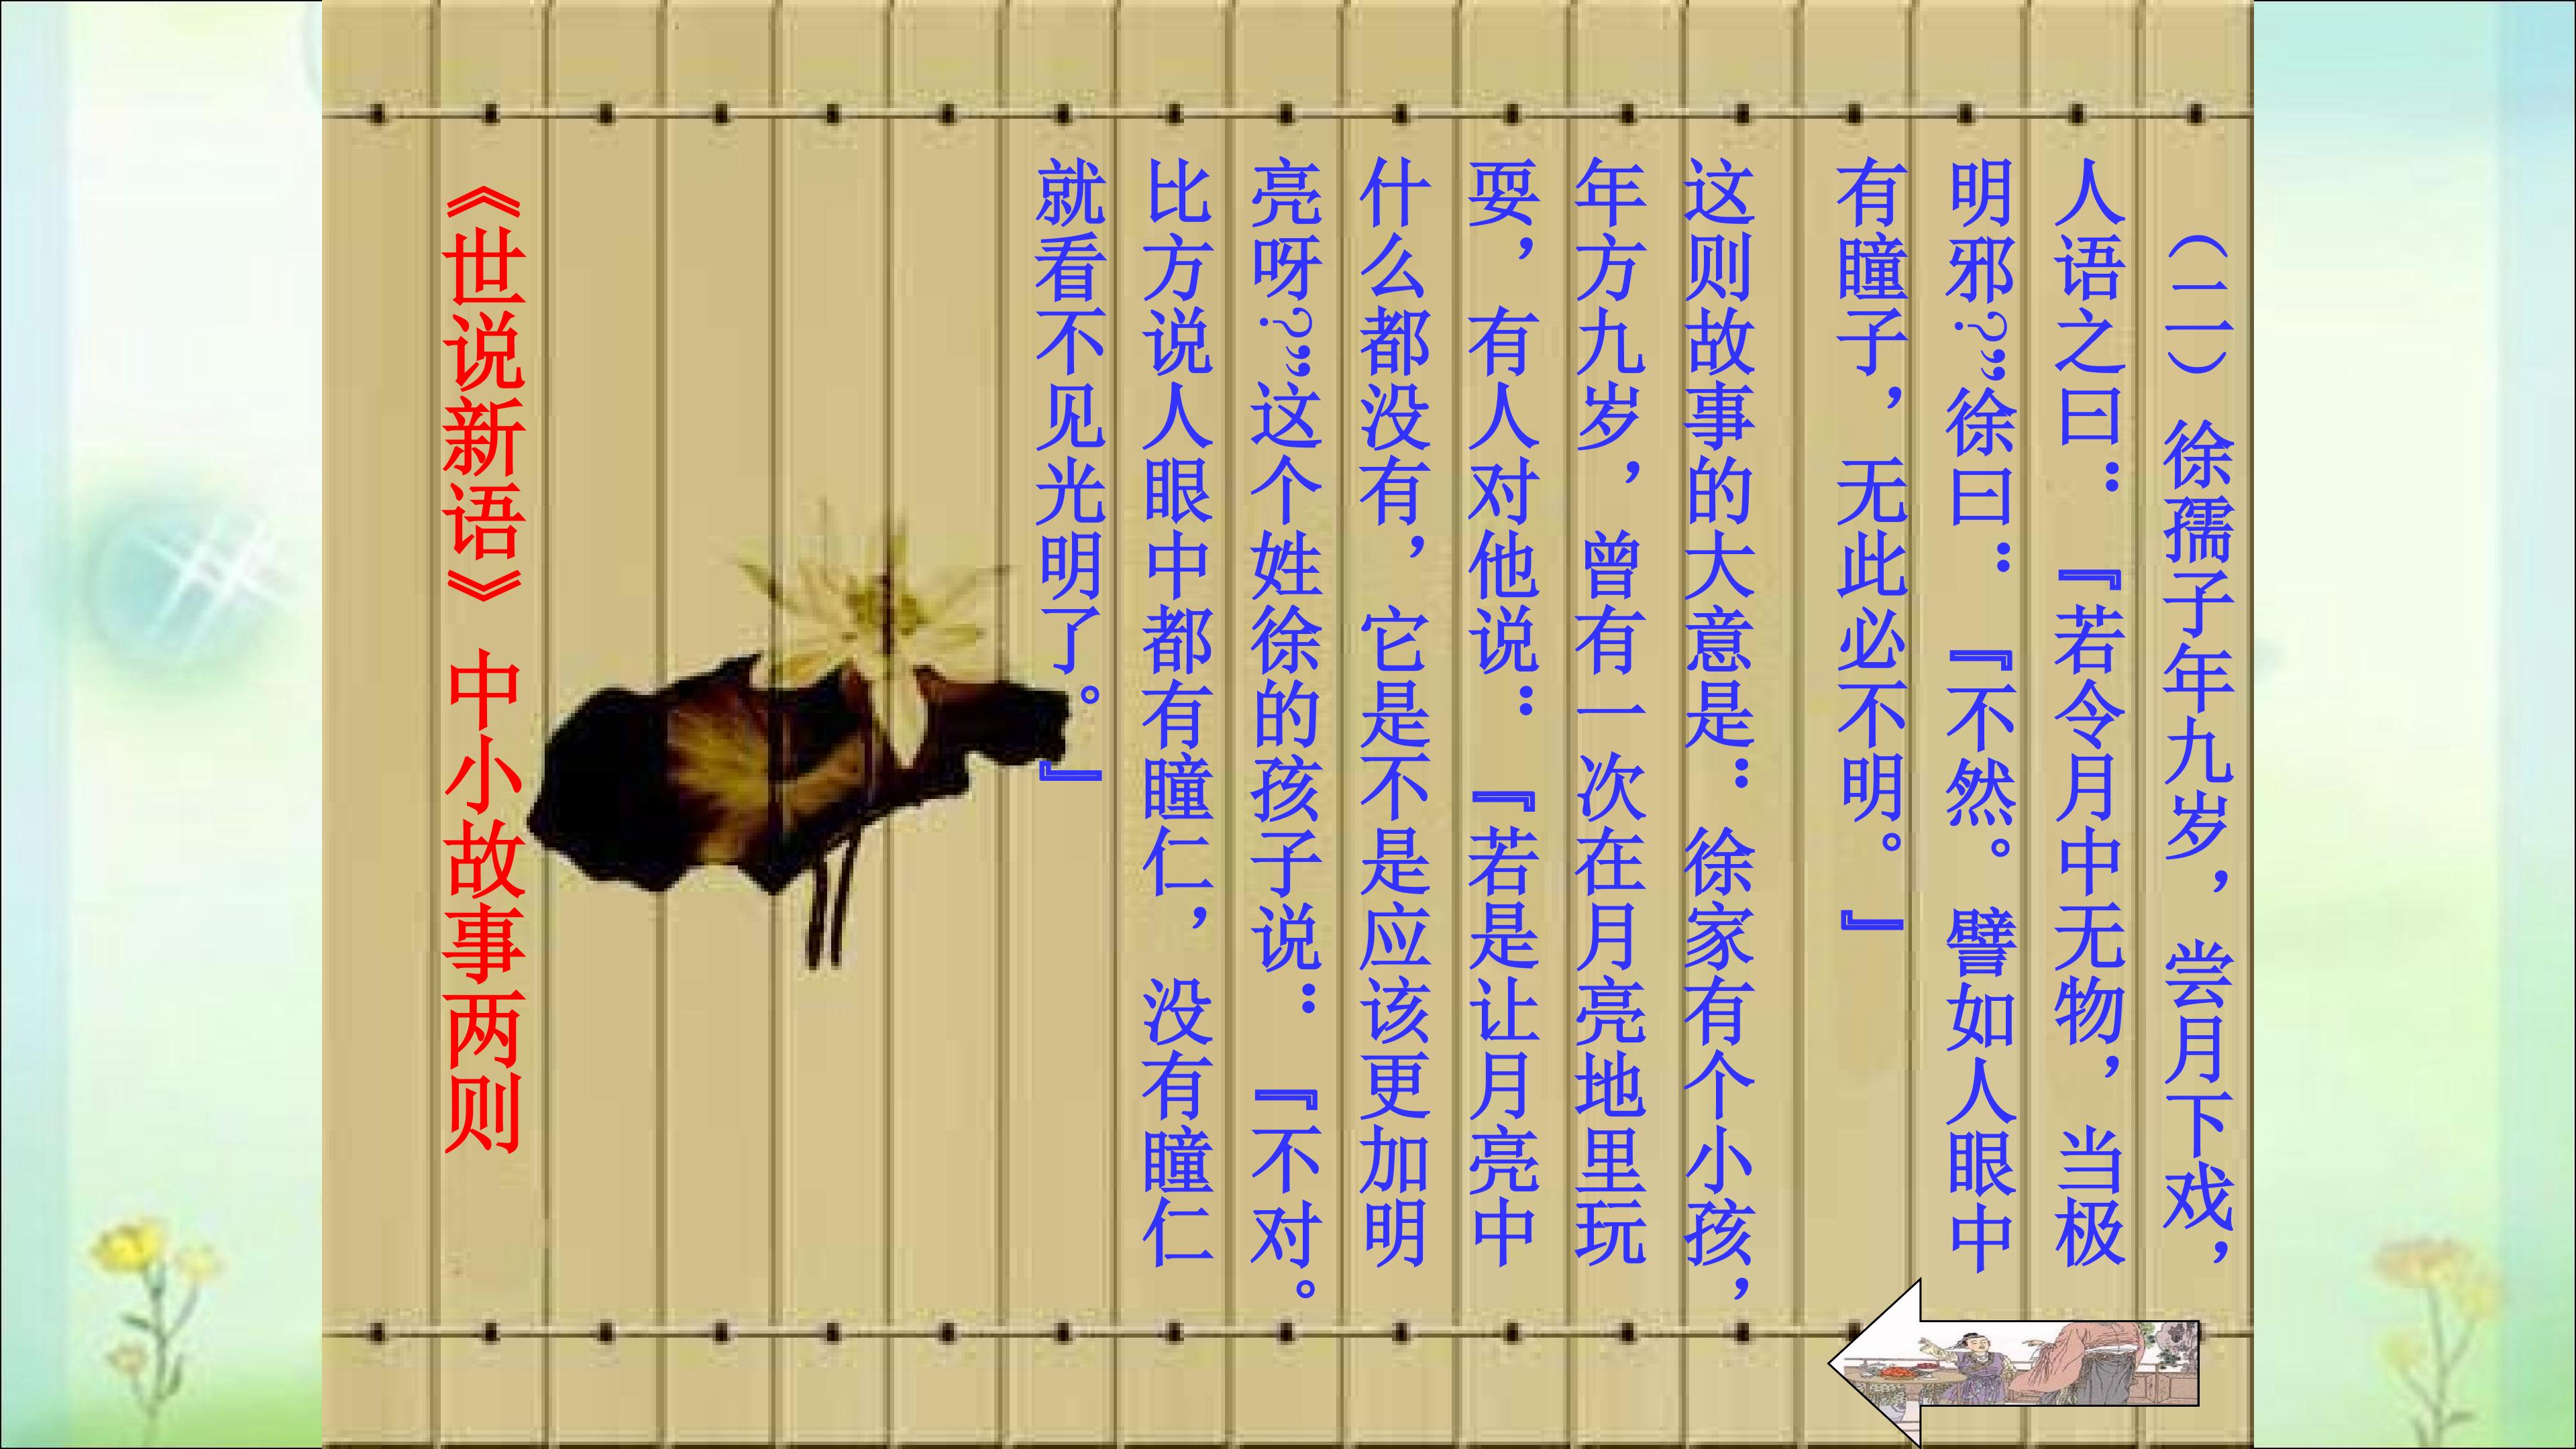 （二）徐孺子年九岁，尝月下戏，
人语之曰：『若令月中无物，当极
明邪？”徐曰：『不然。譬如人眼中
有瞳子，无此必不明。』
这则故事的大意是：徐家有个小孩，
年方九岁，曾有一次在月亮地里玩
耍，有人对他说：『若是让月亮中
什么都没有，它是不是应该更加明
亮呀？”这个姓徐的孩子说：『不对。
比方说人眼中都有瞳仁，没有瞳仁
就看不见光明了。』
《世说新语》中小故事两则